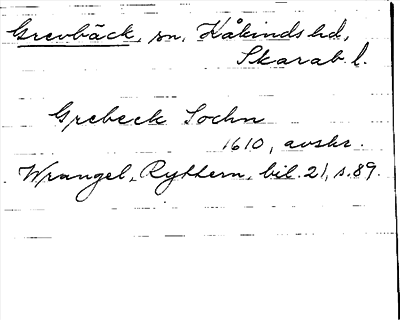 Grevbäck, sn, Kåkinds hd,
Skarab. l.
Grebeck Sochn
1610, avskr.
Wrangel, Ryttern, bil. 21, s. 89.